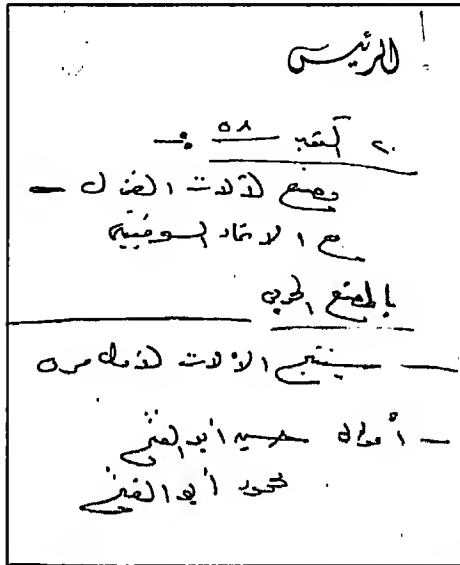 الرئيس
٢٠ أكتوبر ٥٨ :-
مصنع لآلات الغزل -
مع الاتحاد السوفييتى
بالمصنع الحربى
- سينتج الآلات لأول مرة
- أموال حسين أبو الفتح
محمود أبو الفتح